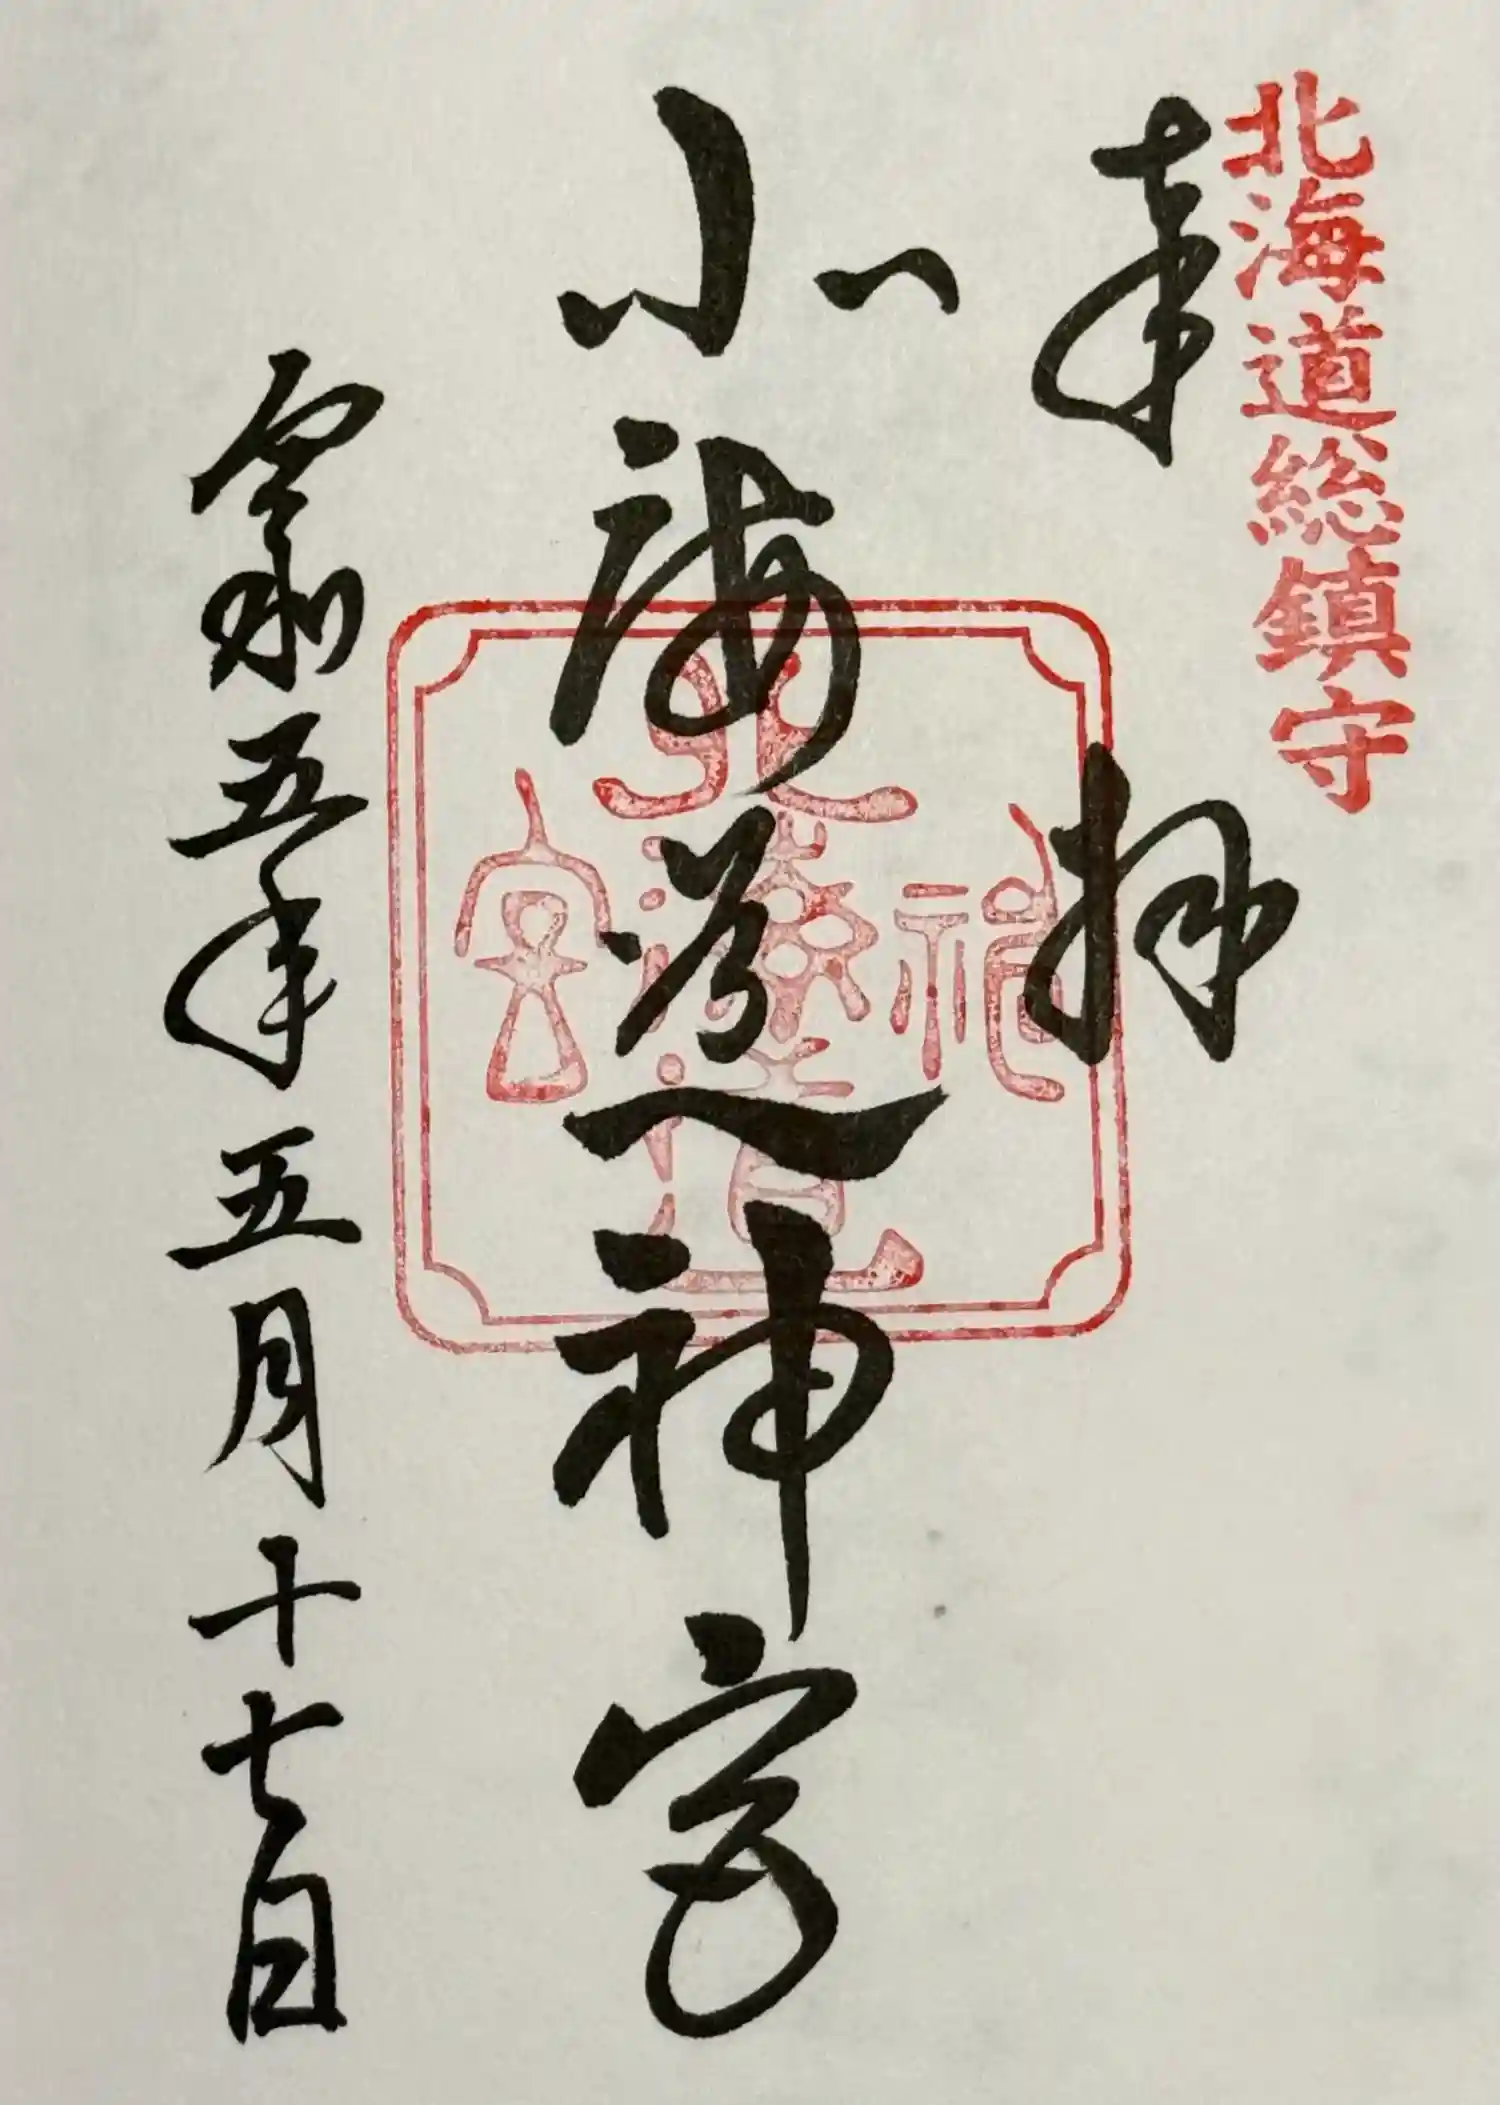 北海道総鎮守
奉拝
北海道神宮
令和五年五月十七日
北海道
神宮